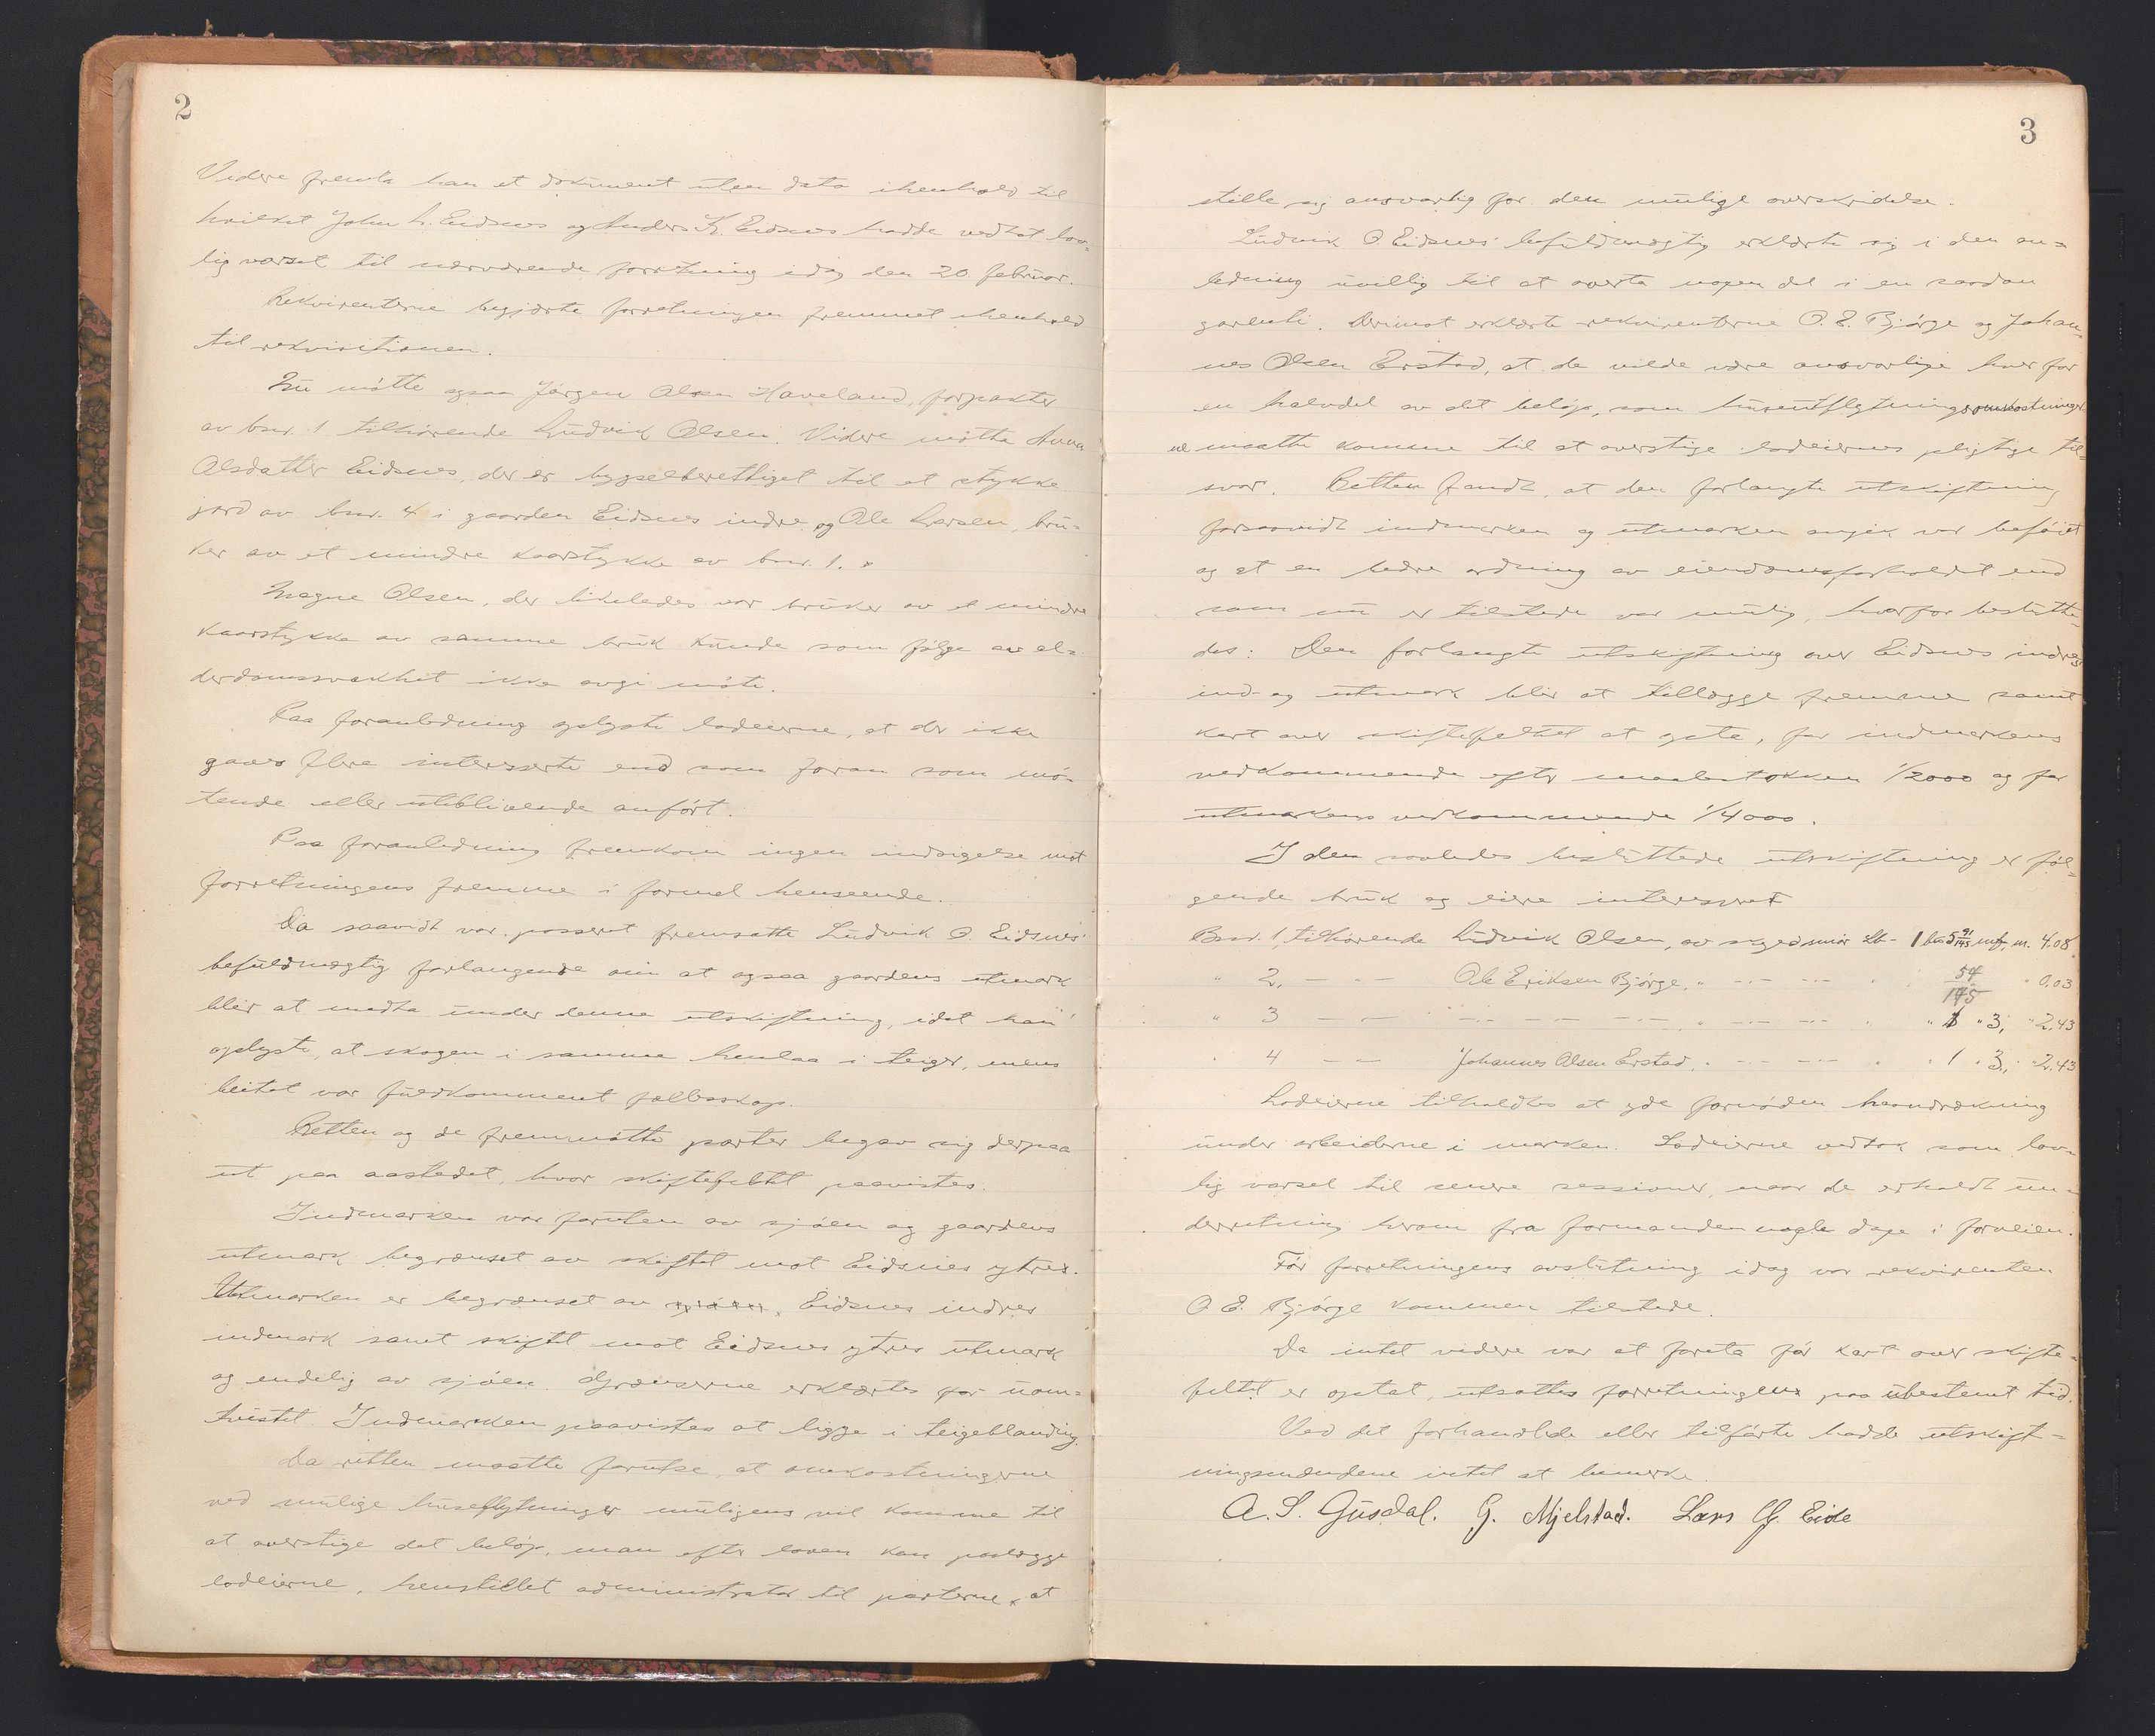 2
Videre fremla han et dokument uten dato ihenhold til
hvilket John L. Eidsnes og Anders K. Eidsnes hadde vedtat lov-
lig varsel til nærværende forretning idag den 20. februar.
Rekvirenterne begjærte forretningen fremmet ihenhold
til rekvisitionen.
Nu møtte ogsaa Jørgen Olsen Haveland, forpakter
av bnr. 1 tilhørende Ludvik Olsen. Videre møtte Anna
Olsdatter Eidsnes, der er bygselberettiget til et stykke
jord av bnr. 4 i gaarden Eidsnes indre og Ole Larsen, bru-
ker av et mindre kaarstykke av bnr. 1.
Magne Olsen, der likeledes var bruker av et mindre
kaarstykke av samme bruk kunde som følge av al-
derdomssvakhet ikke avgi møte.
Paa foranledning oplyste lodeierne, at der ikke
gaves flere interesserte end som foran som mø-
tende eller uteblivende anført.
Paa foranledning fremkom ingen indsigelse mot
forretningens fremme i formel henseende.
Da saavidt var passeret fremsatte Ludvik O. Eidsnes'
befuldmægtig forlangende om at ogsaa gaardens utmark
blir at medta under denne utskiftning, idet han
oplyste, at skogen i samme henlaa i teiger, mens
beitet var fuldkomment fællesskap.
Retten og de fremmøtte parter begav sig derpaa
ut paa aastedet, hvor skiftefeltet paavistes.
Indmarken var foruten av sjøen og gaardens
utmark begrænset av skiftet mot Eidsnes ytres.
Utmarken er begrænset av sjøen, Eidsnes indres
indmark samt skiftet mot Eidsnes ytres utmark
og endelig av sjøen. Grænserne erklærtes for uom-
tvistet. Indmarken paavistes at ligge i teigeblanding.
Da retten maatte forutse, at omkostningerne
ved mulige huseflytninger muligens vil komme til
at overstige det beløp, man efter loven kan paalægge
lodeierne, henstillet administrator til parterne, at
3
stille sig ansvarlig for den mulige overskridelse.
Ludvik O. Eidsnes' befuldmægtig erklærte sig i den an-
ledning uvillig til at overta nogen del i en saadan
garanti. Derimot erklærte rekvirenterne O. E. Bjørge og Johan-
nes Olsen Erstad, at de vilde være ansvarlige hver for
en halvdel av det beløp, som husutflytningsomkostninger-
ne maatte komme til at overstige lodeiernes pligtige til-
svar. Retten fandt, at den forlangte utskiftning
forsaavidt indmarken og utmarken angik var beføiet
og at en bedre ordning av eiendomsforholdet end
som nu er tilstede var mulig, hvorfor beslutte-
des: Den forlangte utskiftning over Eidsnes indres
ind- og utmark blir at tillægge fremme samt
kart over skiftefeltet at opta, for indmarkens
vedkommende efter maalestokken 1/2000 og for
utmarkens vedkommende 1/4000.
I den saaledes besluttede utskiftning er føl-
gende bruk og eiere interesseret
Bnr. 1, tilhørende Ludvik Olsen, av m. 4.08
" 2, — - — Ole Eriksen Bjørge, " — - — 54/145 " 0.03
" 3 — - — " — - — " 3, " 2.43
" 4 — — Johannes Olsen Erstad, " — - — " 1 " 3, " 2.43
Lodeierne tilholdtes at yde fornøden haandrækning
under arbeiderne i marken. Lodeierne vedtok som lov-
lig varsel til senere sessioner, naar de erholdt un-
derretning herom fra formanden nogle dage i forveien.
Før forretningens avslutning idag var rekvirenten
O. E. Bjørge kommen tilstede.
Da intet videre var at foreta før kart over skifte-
feltet er optat, utsattes forretningen paa ubestemt tid.
Ved det forhandlede eller tilførte hadde utskift-
ningsmændene intet at bemerke.
A. S. Gusdal. G. Mjelstad. Lars G. Eide